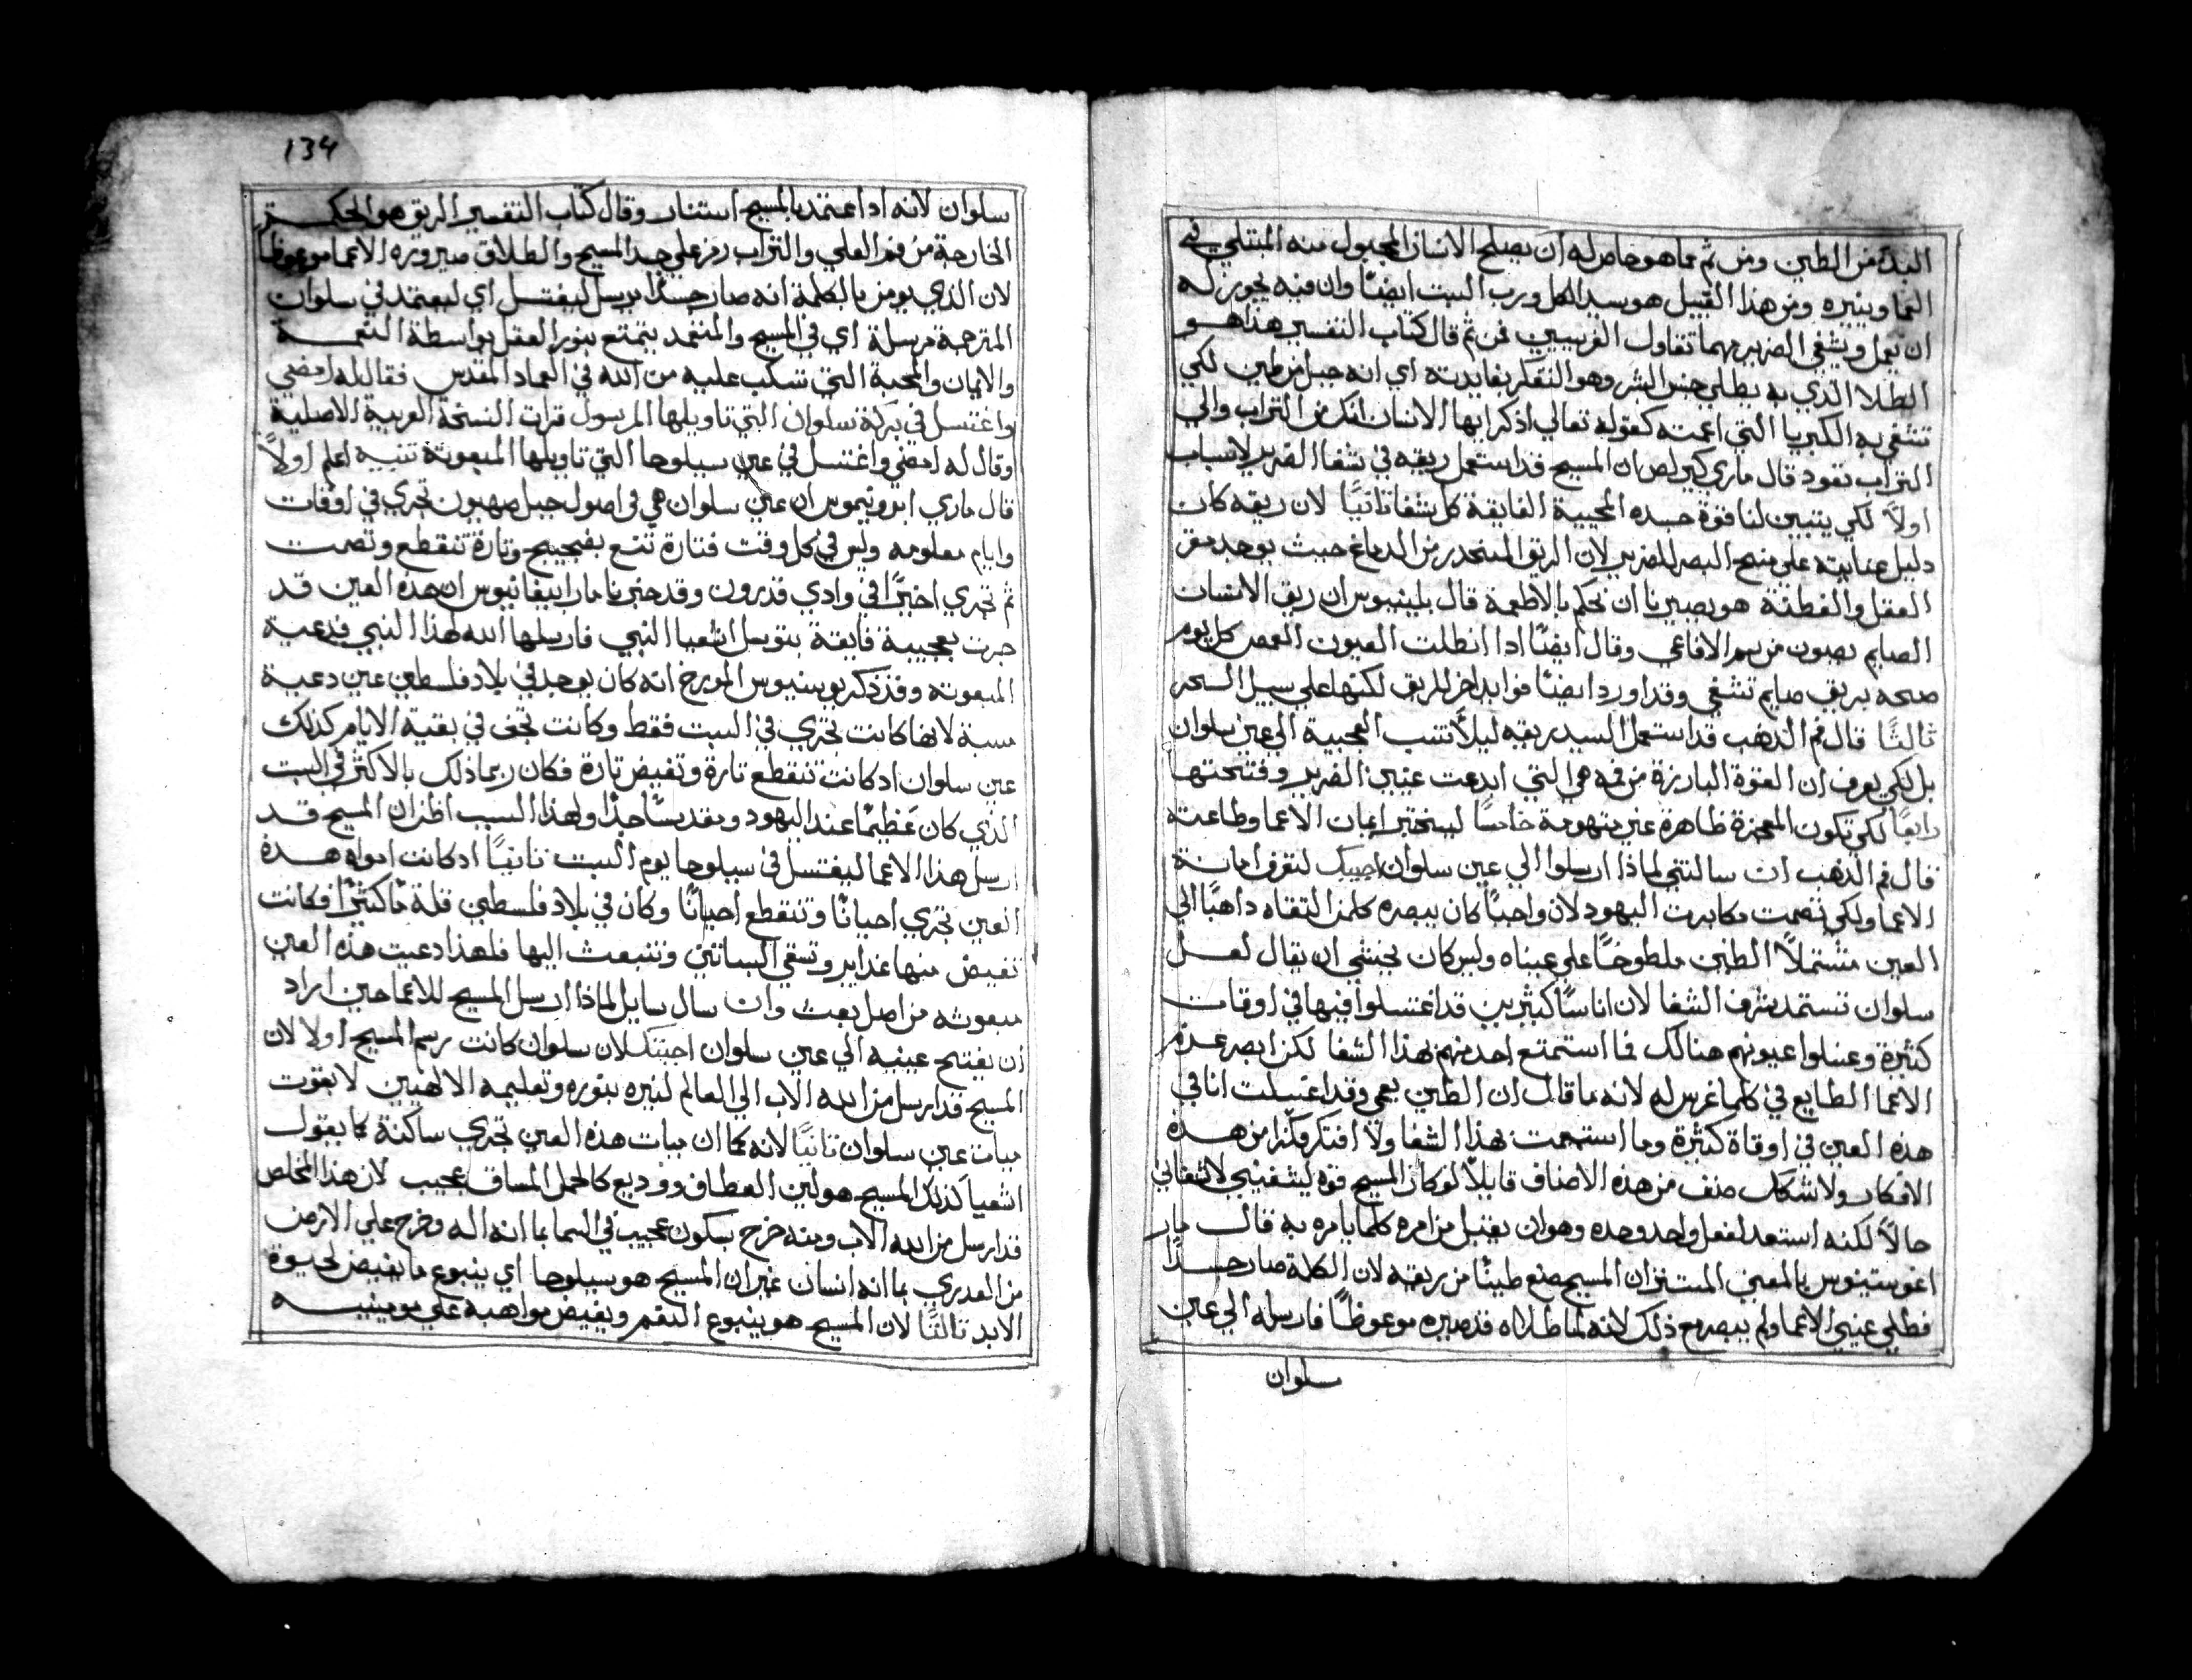 البدء من الطين ومن ثم مما هو خاص له ان يصلح الانسان المجبول منه المبتلي في
العما وينيره ومن هذا القبيل هو سيد الكل ورب السبت ايضًا وان فيه يجوز له
ان يعمل ويشفي الضرير مهما تقاول الفريسيين فمن ثم قال كتاب التفسير هذا هو
الطلا الذي به يطلي جنس البشر وهو التفكر بفايدته اي انه جبل من طين لكي
تشفي به الكبريا التي اعمته كقوله تعالي اذكر ايها الانسان انك من التراب والي
التراب تعود قال ماري كيرلص ان المسيح قد استعمل ريقه في شفا الضرير لاسباب
اولاً لكي يتبين لنا قوة جسده المحيية الفايقة كل شفا ثانيًا لان ريقه كان
دليل عنايته علي منح البصر للضرير لان الريق المنحدر من الدماغ حيث يوجد مقر
العقل والفطنة هو يصيرنا ان نحكم بالاطعمة قال بلينيوس ان ريق الانسان
الصايم يصون من سم الافاعي وقال ايضًا اذا انطلت العيون العمص كل يوم
صبحه بريق صايم تشفي وقد اورد ايضًا فوايد اخر للريق لكنها علي سبيل السحر
ثالثًا قال فم الذهب قد استعمل السيد ريقه ليلاً تنسب العجيبة الي عين سلوان
بل لكي يعرف ان القوة البارزة من فمه هي التي ابدعت عيني الضرير وفتحتها
رابعًا لكي تكون المعجزة ظاهرة غير متهومة خامسًا ليختبر ايمان الاعما وطاعته
قال فم الذهب ان سالتني لماذا ارسلوا الي عين سلوان اجيبك لتعرف امانة
الاعما ولكي تصمت مكابرت اليهود لان واجبًا كان يبصره كلمن التقاه داهبًا الي
العين مشتملاً الطين ملطوخًا علي عيناه وليس كان يخشي ان يقال لعل
سلوان تستمد شرف الشفا لان اناسًا كثيرين قد اغتسلوا فيها في اوقات
كثيرة وغسلوا عيونهم هنالك فما استمتع احد منهم بهذا الشفا لكن ابصر عدم
الاعما الطايع في كلما غرس له لانه ما قال ان الطين يعمي وقد اغتسلت انا في
هذه العين في اوقاة كثيرة وما استمتعت بهذا الشفا ولا افتكر فكرًا من هذه
الافكار ولا شكك صنف من هذه الاصناف قايلاً لو كان المسيح قوة ليشفيني لاشفاني
حالاً لكنه استعد لفعل واحد وحده وهو ان يقتبل من امره كلما يامره به قال مار
اغوستينوس بالمعني المستتر ان المسيح صنع طينًا من ريقه لان الكلمة صار جسدًا
فطلي عيني الاعما ولم يبصر مع ذلك لانه لما طلاه قد صيره موعوظًا فارسله الي عين
سلوان
134
سلوان لانه اذا اعتمد بالمسيح استنار وقال كتاب التفسير الريق هو الحكمة
الخارجة من فم العلي والتراب رمز علي جسد المسيح والطلاق صيرورة الاعما موعوظًا
لان الذي يومن بالكلمة انه صار جسدًا يرسل ليغتسل اي ليعتمد في سلوان
المترجمة مرسلة اي في المسيح والمنعمد يتمتع بنور العقل بواسطة النعمة
والايمان والمحبة التي تسكب عليه من الله في العماد المقدس فقال له امضي
واغتسل في بركة سلوان التي تاويلها المرسول قرات النسخة العربية الاصلية
وقال له امضي واغتسل في عين سيلوحا التي تاويلها المبعوثة تنبيه اعلم اولاً
قال ماري ايرونيموس ان عين سلوان هي في اصول جبل صهيون تجري في اوقات
وايام معلومه وليس في كل وقت فتارة تنبع بضجيج وتارة تنقطع وتصمت
ثم تجري اخيرًا في وادي قدرون وقد خبرنا مار ابيفانيوس ان هذه العين قد
جرت بعجيبة فايقة بتوسل اشعيا النبي فارسلها الله لهذا النبي فدعية
المبعوثه وقد ذكر يوسيبوس المورخ انه كان يوجد في بلاد فلسطين عين دعية
سبتة لانها كانت تجري في السبت فقط وكانت تجف في بقية الايام كذلك
عين سلوان اد كانت تنقطع تارة وتفيض تارة فكان ربما ذلك بالاكثر في السبت
الذي كان عظيمًا عند اليهود ومقدسًا جدًا ولهذا السبب اظن ان المسيح قد
ارسل هذا الاعما ليغتسل في سيلوحا يوم السبت ثانيًا اد كانت امواه هذه
العين تجري احيانًا وتنقطع احيانًا وكان في بلاد فلسطين قلة ما كثيرًا فكانت
تفيض منها غداير وتسقي البساتين وتنبعث اليها فلهذا دعيت هذه العين
مبعوثه من اصل بعث وان سال سايل لماذا ارسل المسيح للاعما حين اراد
ان يفتح عينيه الي عين سلوان اجيبك لان سلوان كانت رسم المسيح اولا لان
المسيح قد ارسل من الله الاب الي العالم لنيره بنوره وتعليمه الالهيين لا بقوت
مياة عين سلوان ثانيًا لانه كما ان مياة هذه العين تجري ساكنة كما يقول
اشعيا كذلك المسيح هو لين العطاف ووديع كالحمل المساق عجيب لان هذا المخلص
قد ارسل من الله الاب ومنه خرج بسكون عجيب في السما بما انه اله وخرج علي الارض
من العدري بما انه انسان غير ان المسيح هو سيلوحا اي ينبوع ما يفيض لحيوة
الابد ثالثًا لان المسيح هو ينبوع النعم ويفيض مواهبه علي مومنيه